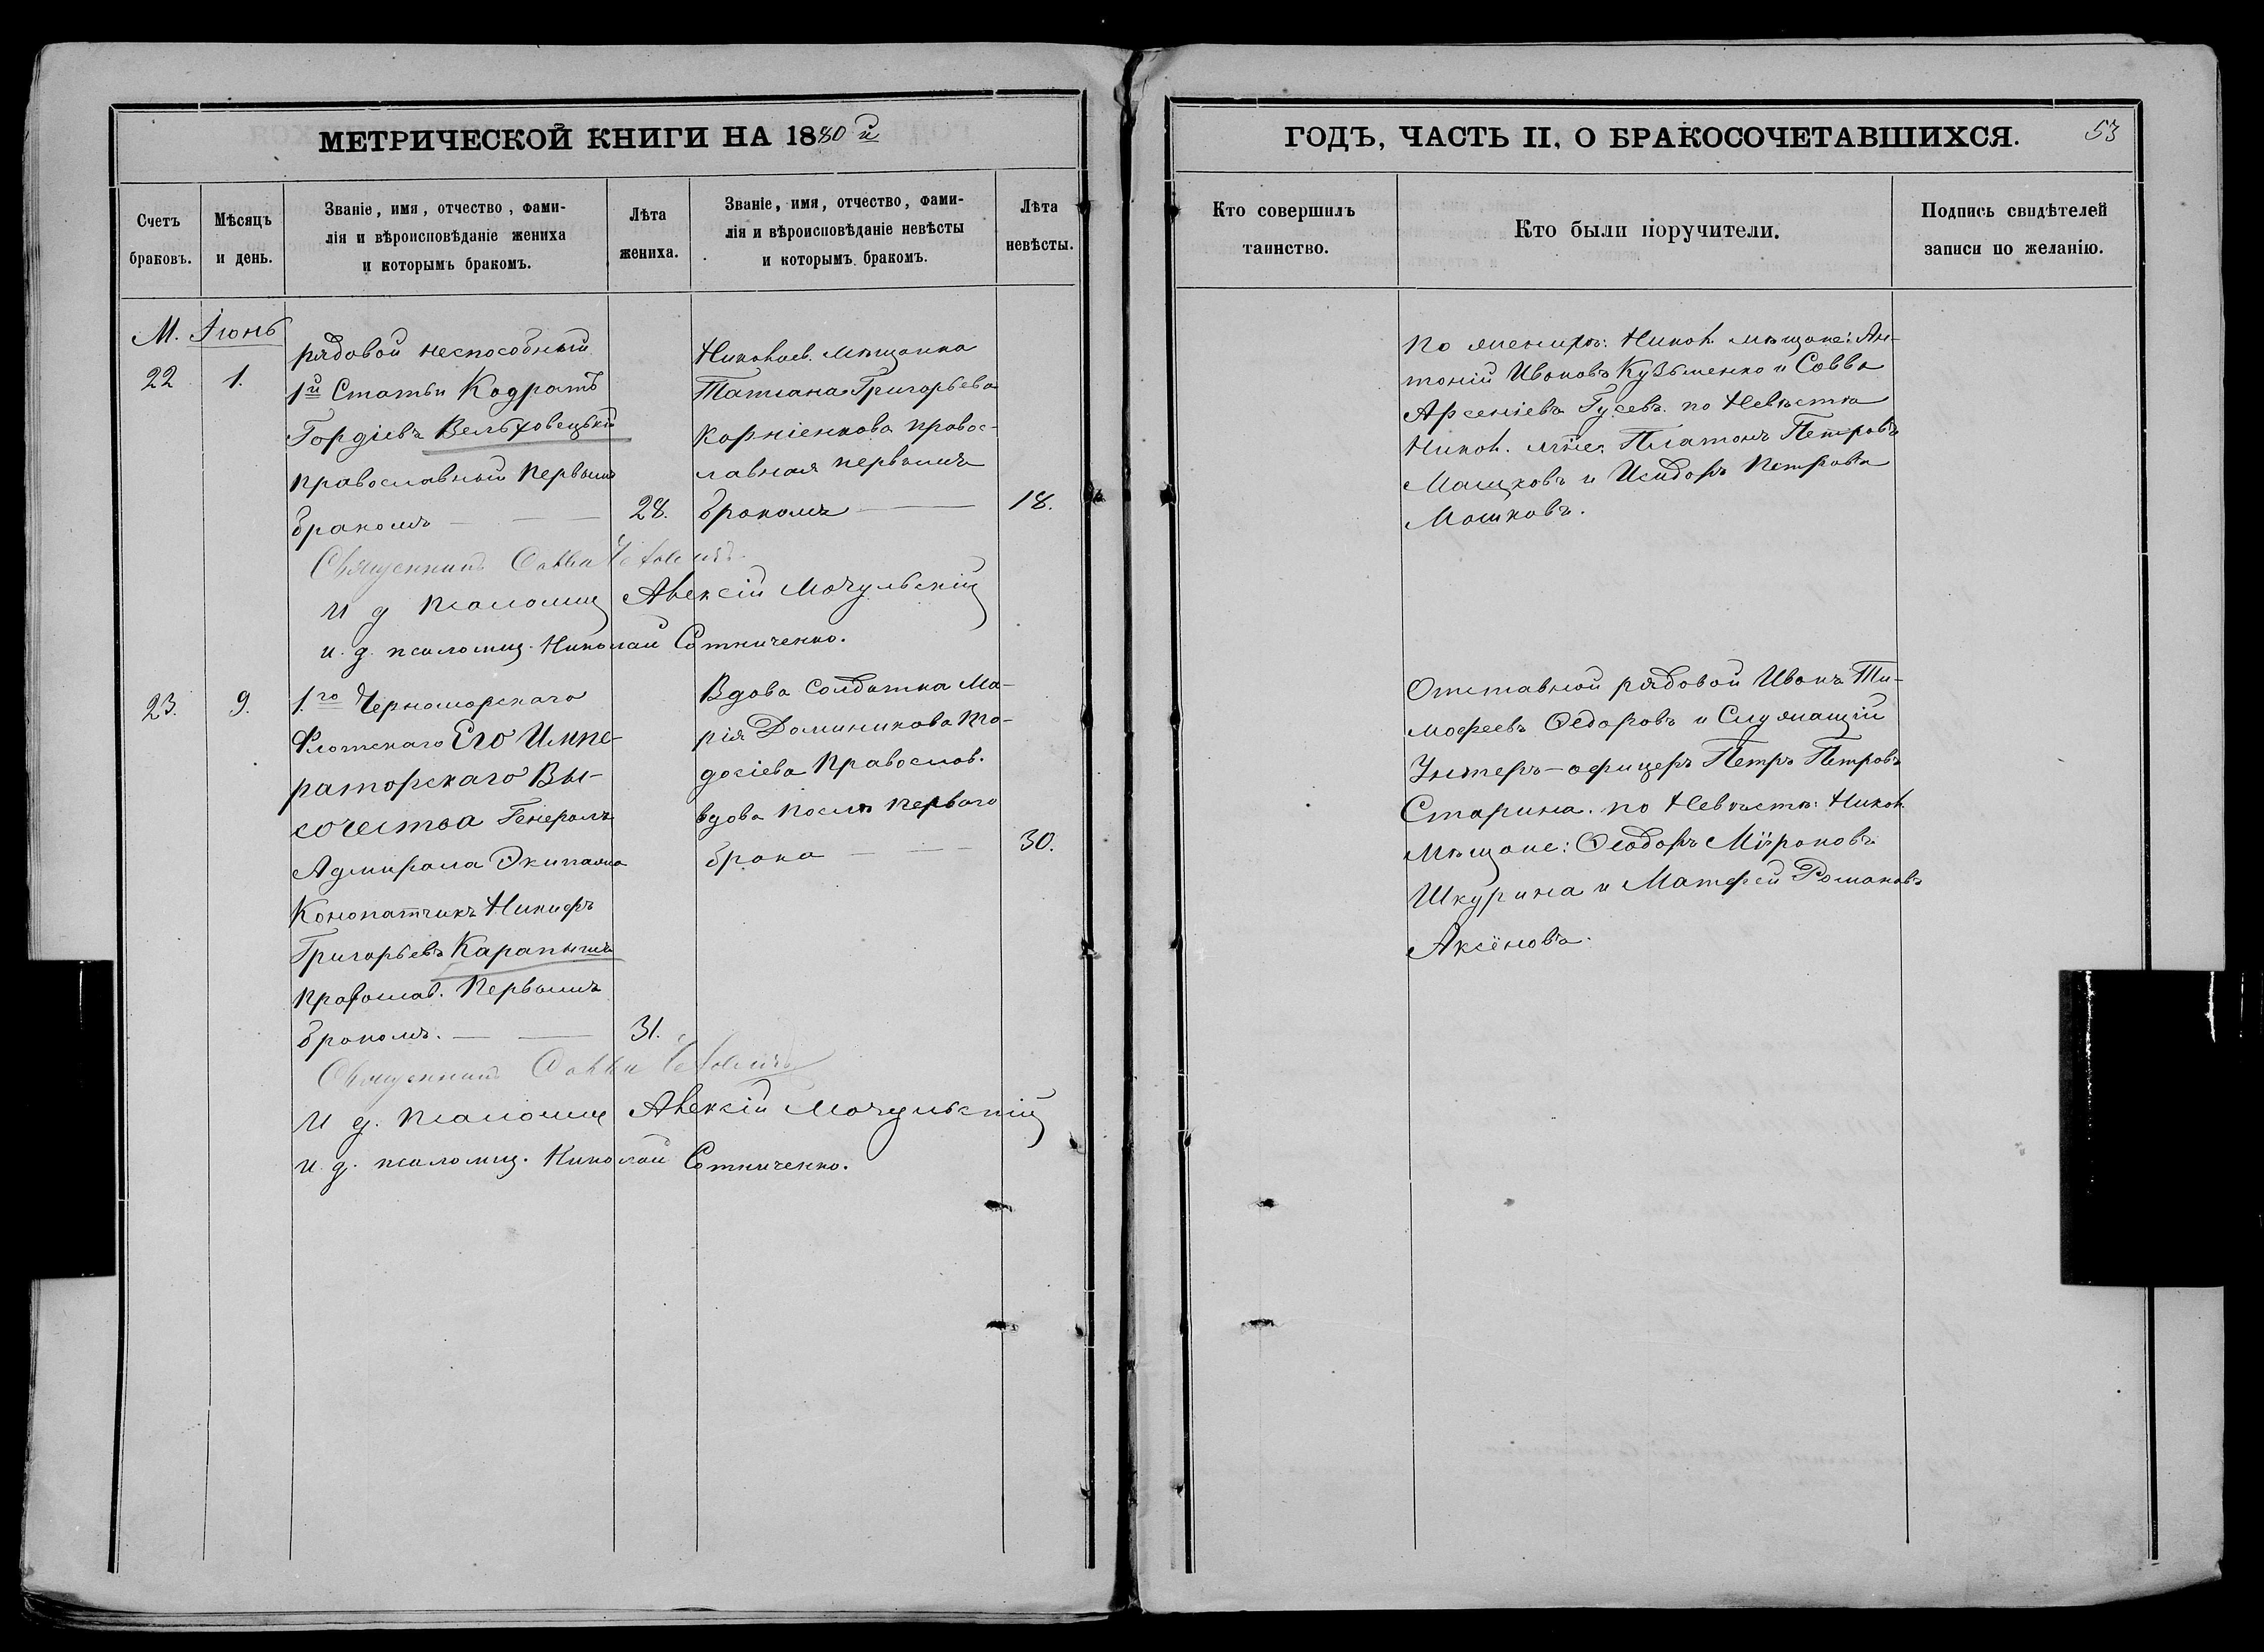 МЕТРИЧЕСКОЙ КНИГИ НА 1880 й
Счетъ
браковъ.
Мѣсяцъ
и день.
Званіе, имя, отчество, фами-
лія и вѣроисповѣданіе жениха
и которымъ бракомъ.
Лѣта
жениха.
Званіе, имя, отчество, фами-
лія и вѣроисповѣданіе невѣсты
и которымъ бракомъ.
Лѣта
невѣсты.
М. Іюнь
22
1.
рядовой неспособный
1й Статьи Кодратъ
Гордіевъ
православный первымъ
бракомъ
28.
Николаев. мѣщанка
Татіана Григорьева
Корніенкова правос-
лавная первымъ
бракомъ
18.
Священникъ Савва
И д псаломщ Алексій Мочульскій
и. д. псаломщ. Николай Сотниченко.
23.
9.
1.го Черноморскаго
Флотскаго Его Импе-
раторскаго Вы-
сочества Генералъ
Адмирала Экипажа
Конопатчикъ Никифръ
Григорьевъ
Православ. Первымъ
бракомъ.
31.
Вдова солдатка Ма-
рія Доминикова То-
досіева Православ.
вдова послѣ перваго
брака
30.
Священникъ Савва
И д. псаломщ Алексій Мочульскій
и. д. псаломщ. Николай Сотниченко.
ГОДЪ, ЧАСТЬ II, О БРАКОСОЧЕТАВШИХСЯ.
53
Кто совершилъ
таинство.
Кто были поручители.
Подпись свидѣтелей
записи по желанію.
По женихѣ: Никол. мѣщане: Ан-
тоній Ивановъ Кузьменко и Савва
Арсеніевъ Гусевъ. по Невѣстѣ
Никол. мѣщ. Платонъ Петровъ
Машковъ и Исидоръ Петровъ
Машковъ.
Отставной рядовой Иванъ Ти-
мофеевъ Ѳедоровъ и Служащій
Унтеръ-офицеръ Петръ Петровъ
Старина. по Невѣстѣ: Никол.
Мѣщане: Ѳеодоръ Міроновъ
Шкурина и Матфей Романовъ
Аксёновъ.